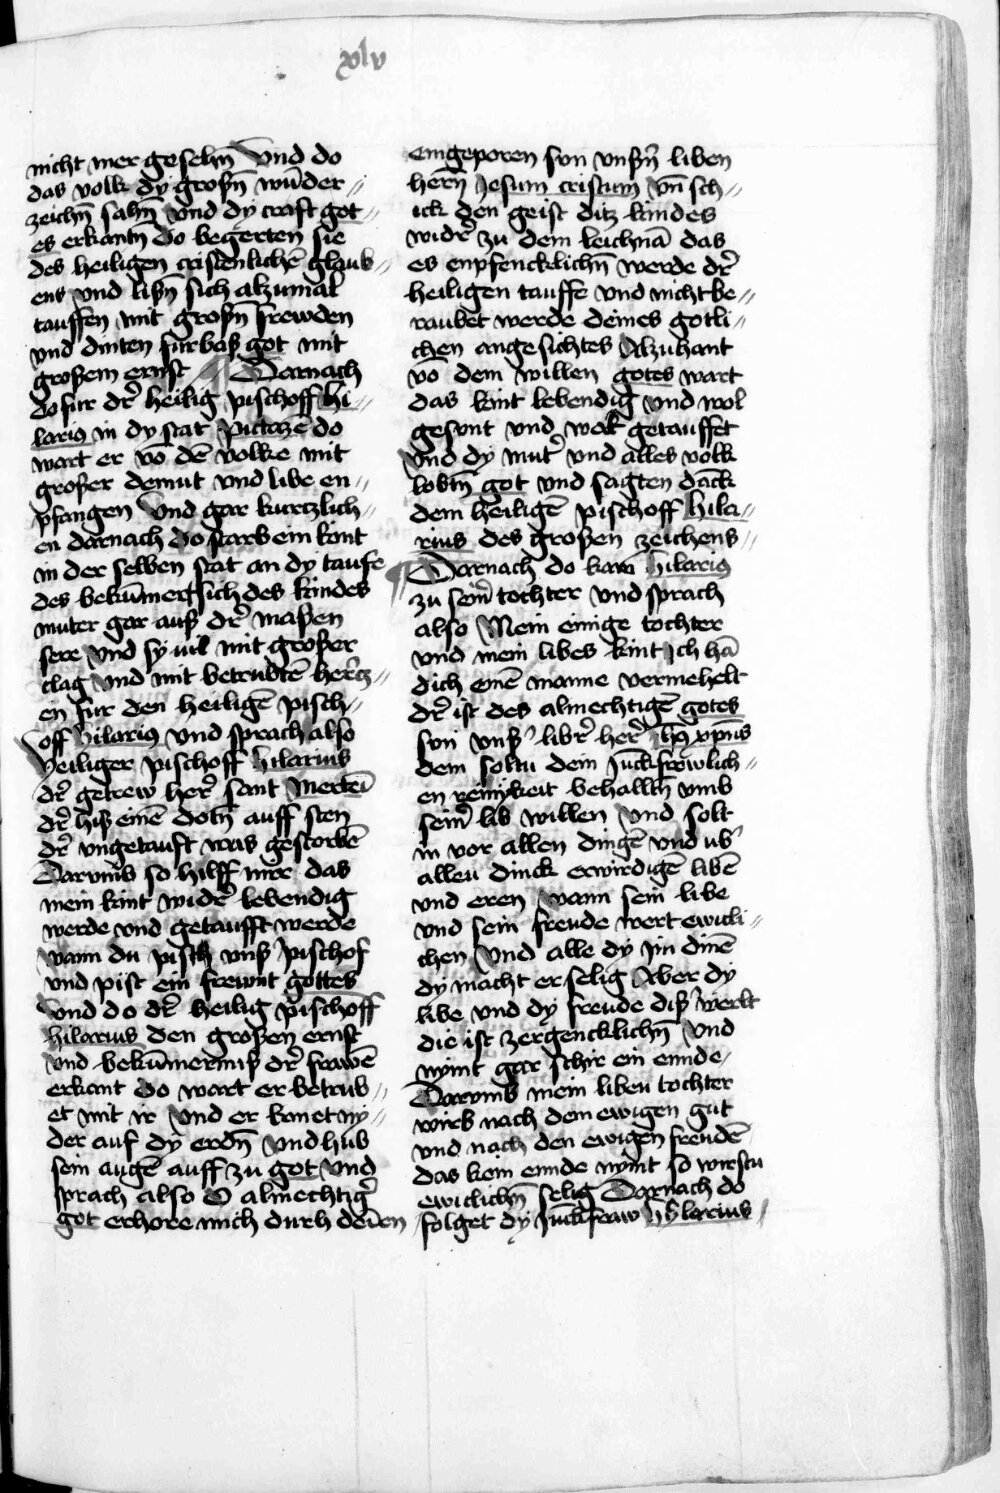 xlv
nicht mer gesehn̄ Vnd do
das volk dy großn̄ wūder⸗
zeichn̄ sahn̄ vnd dy craft got⸗
es erkantn̄ do begerten sie
des heiligen cristenlichē glaub⸗
ens vnd lißn̄ sich alzumal
tauffen mit großn̄ frewden
vnd dinten furbaß got mit
großem ernst ¶ Darnach
do fur dr̄ heilig pischoff hi⸗
larius in dy stat pictaze do
wart er vō dē volke mit
großer demut vnd libe en⸗
pfangen Vnd gar kurczlich⸗
en darnach do starb ein kint
in der selben stat an dy taufe
des bekūmert sich des kindes
muter gar auß dr̄ maßen
sere vnd sy uil mit großer
clag vnd mit betrubtē hercz⸗
en fur den heiligē pisch⸗
off hilarius vnd sprach also
Heiliger pischoff hilarius
dr̄ getrew her̄ sant mertei
dr̄ hiß einē dotn̄ auff sten
dr̄ vngetauft was gestorbē
Darvmb so hilff mir das
mein kint widr̄ lebendig
werde vnd getaufft werde
wann du pist vnß pischof
vnd pist ein frewnt gottes
Vnd do dr̄ heilig pischoff
hilarius den großen ernst
vnd bekūmerniß dr̄ frawē
erkant do wart er betrub⸗
et mit ir vnd er kniet ny⸗
der auf dy erdn̄ vnd hub
sein augē auff zu got vnd
sprach also O almechtiḡ
got erhore mich durh deinen
eingeporen sun vnßn̄ liben
hern̄ Jesum cristum vn̄ sch⸗
ick den geist ditz kindes
widr̄ zu dem leichnā das
es enpfencklichn̄ werde dr̄
heiligen tauffe vnd nicht be⸗
raubet werde deines gotli⸗
chen angesichtes Alzuhant
vō dem willen gotes wart
das kint lebendig vnd wol
gesunt vnd wart getauffet
Vnd dy mut̄ vnd alles volk
lobtn̄ got vnd sagten danck
dem heiligē pischoff hila⸗
rius des großen zeichens
¶ Darnach do kam hilarius
zu sein̄ tochter vnd sprach
also Mein einige tochter
vnd mein libes kint Ich hā
dich einē manne vermehelt
dr̄ ist des almechtigē gotes
sun vnß libr̄ her̄ ihs xpūs
dem soltu dein Junckfrewlich⸗
en reinykeit behalltn̄ vmb
sein̄ lib willen vnd solt
in vor allen dingē vnd ub̄
allen dinck erwirdigē libē
vnd eren wann sein libe
vnd sein freude wert ewicli⸗
chen Vnd alle dy im dinē
dy macht er selig Aber dy
libe vnd dy freude diß werlt
die ist zergencklichn̄ vnd
nymt gar schir ein ennde
Darvmb mein liben tochter
wirb nach dem ewigen gut
vnd nach den ewigen freudē
das kein ennde nymt so wirstu
ewiclichn̄ selig Darnach do
folget dy Junckfraw hylarius